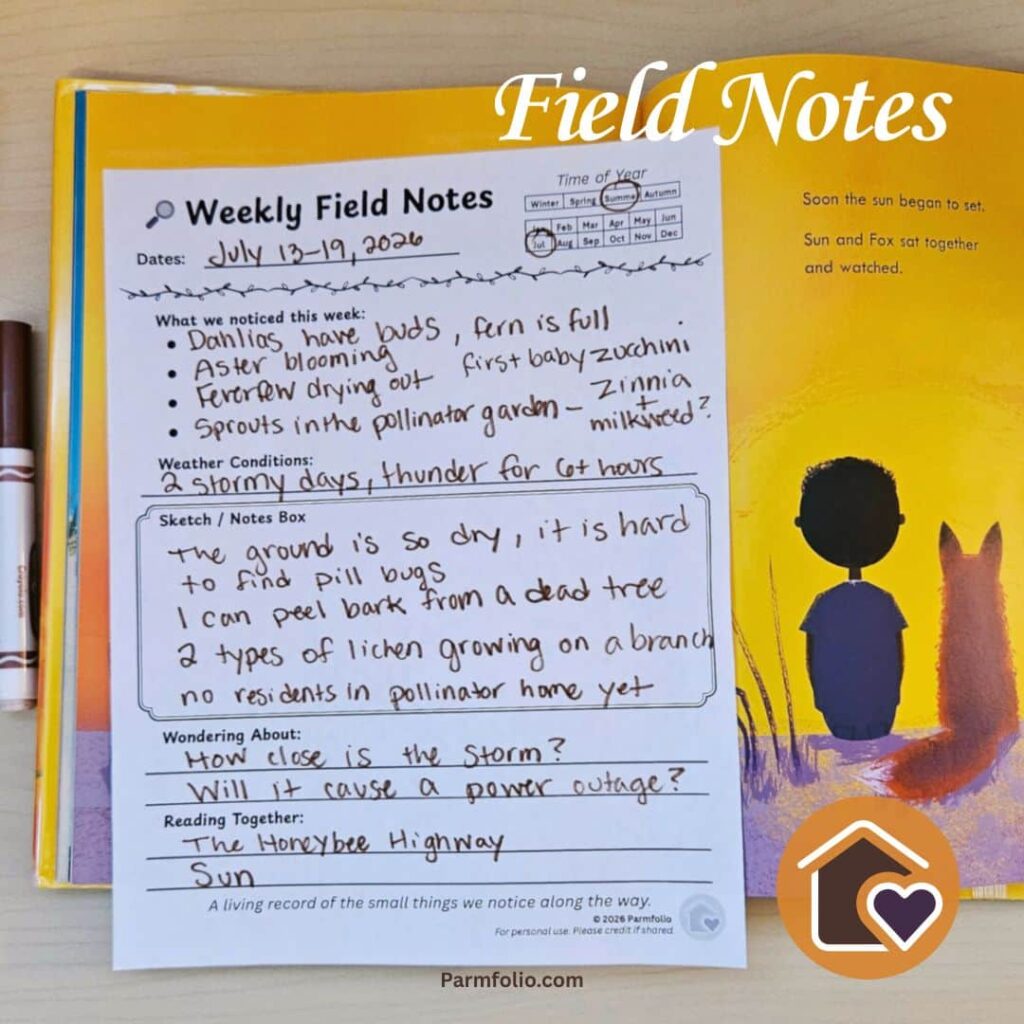 Field Notes
Soon the sun began to set.
Sun and Fox sat together
and watched.
Weekly Field Notes
Time of Year
Winter Spring Summer Autumn
Feb Mar Apr May Jun
Jul Aug Sep Oct Nov Dec
Dates: July 13-19, 2026
What we noticed this week:
• Dahlias have buds, fern is full
• Aster blooming first baby zucchini
• Feverfew drying out
• Sprouts in the pollinator garden - zinnia
+
milkweed?
Weather Conditions:
2 stormy days, thunder for 6+ hours
Sketch / Notes Box
The ground is so dry, it is hard
to find pill bugs
I can peel bark from a dead tree
2 types of lichen growing on a branch
no residents in pollinator home yet
Wondering About:
How close is the storm?
Will it cause a power outage?
Reading Together:
The Honeybee Highway
Sun
A living record of the small things we notice along the way.
© 2026 Parmfolio
For personal use. Please credit if shared.
Parmfolio.com